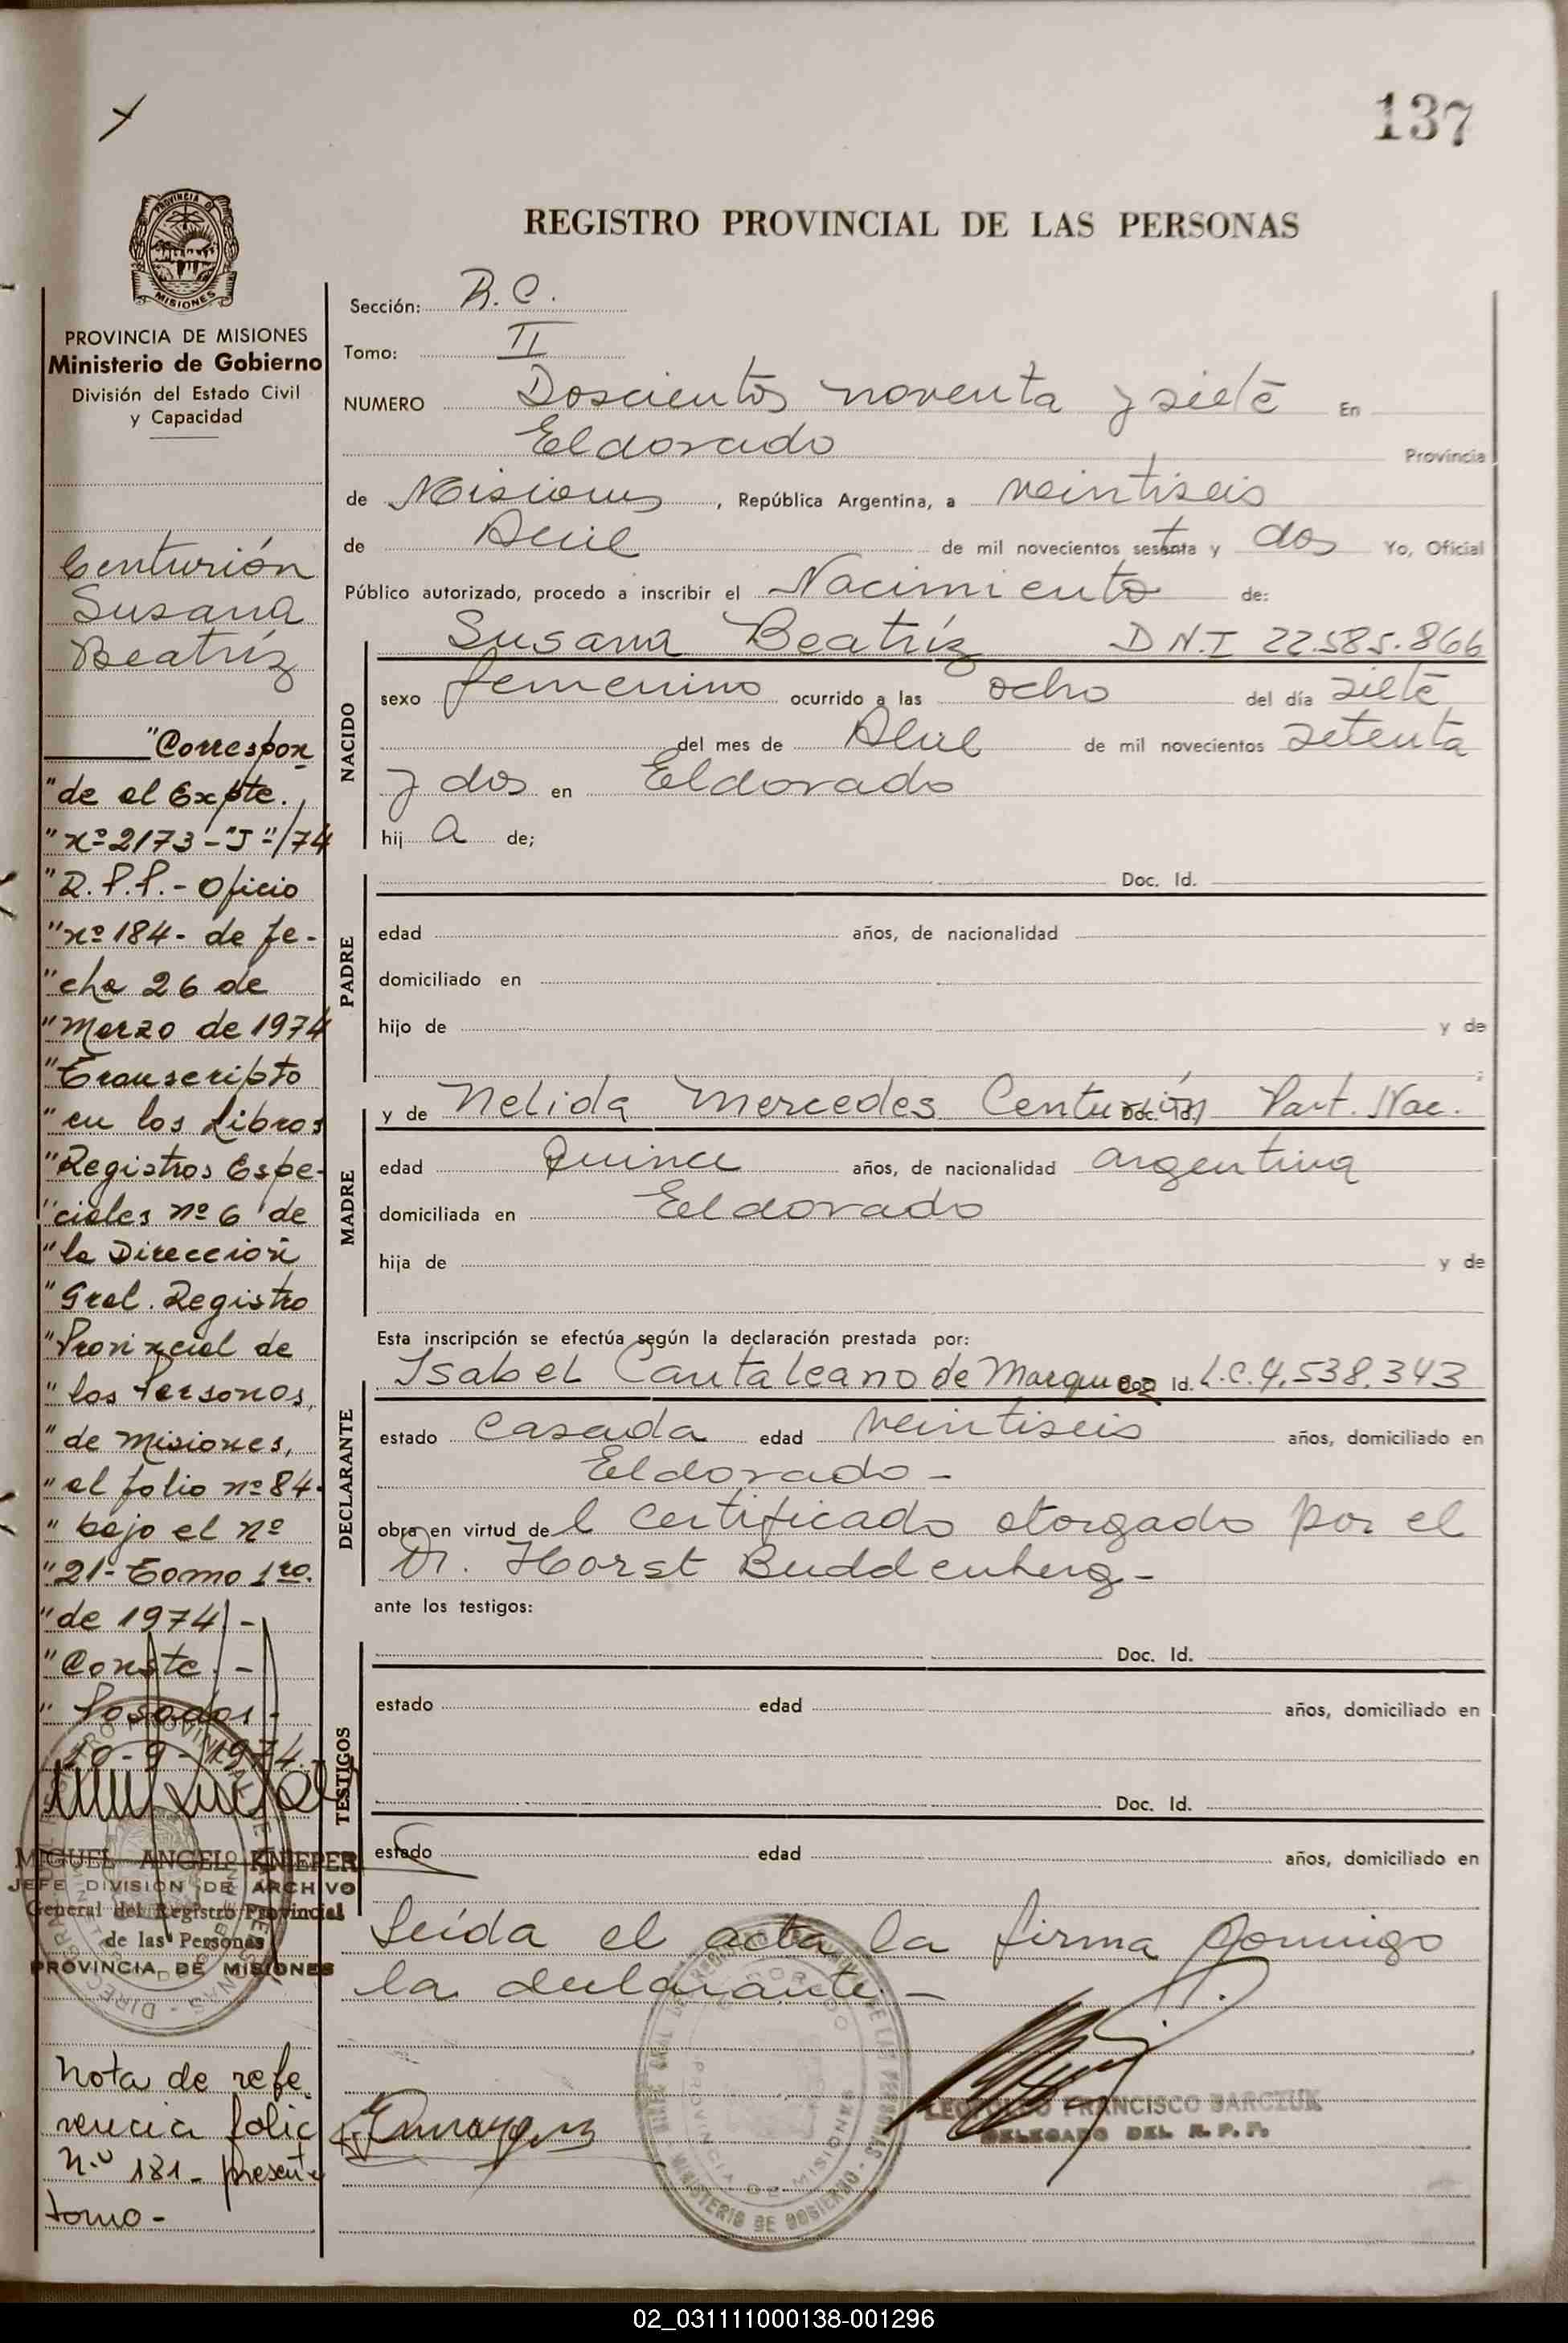 137
REGISTRO PROVINCIAL DE LAS PERSONAS
PROVINCIA DE MISIONES
PROVINCIA DE MISIONES
Ministerio de Gobierno
División del Estado Civil
y Capacidad
Centurión
Susana
Beatríz
"Correspon
"de al Expte.
"nº 2173-"J"/74
"R.P.P.- Oficio
"nº 184- de fe-
"cha 26 de
"Marzo de 1974
"Transcripto
"en los Libros
"Registros Espe-
"ciales nº 6 de
"la Dirección
"Gral. Registro
"Provincial de
"las Personas,
"de Misiones,
"al folio nº 84-
"bajo el nº
"21- Tomo 1ro.
"de 1974.-
"Conste.-
"Posadas-
10-9-1974.
MIGUEL ANGEL KNIEPER
JEFE DIVISION DE ARCHIVO
General del Registro Provincial
de las Personas
PROVINCIA DE MISIONES
Nota de refe
rencia folio
N.º 181- presente
tomo-
Sección: R.C.
Tomo: II
NUMERO Doscientos noventa y siete En
Eldorado Provincia
de Misiones, República Argentina, a veintiseis
de Abril de mil novecientos setenta y dos Yo, Oficial
Público autorizado, procedo a inscribir el Nacimiento de:
NACIDO
Susana Beatríz DNI 22.585.866
sexo femenino ocurrido a las ocho del día siete
del mes de Abril de mil novecientos setenta
y dos en Eldorado
hij a de;
PADRE
Doc. Id.
edad años, de nacionalidad
domiciliado en
hijo de y de
MADRE
y de Nelida Mercedes Centurión Doc. Id. Part. Nac.
edad Quince años, de nacionalidad argentina
domiciliada en Eldorado
hija de y de
Esta inscripción se efectúa según la declaración prestada por:
DECLARANTE
Isabel Cantaleano de Marquez Doc. Id. L.C. 4.538.343
estado casada edad veintiseis años, domiciliado en
Eldorado-
obra en virtud de l certificado otorgado por el
Dr. Horst Buddenberg-
ante los testigos:
TESTIGOS
Doc. Id.
estado edad años, domiciliado en
Doc. Id.
estado edad años, domiciliado en
Leída el acta la firma conmigo
la declarante.-
LEOPOLDO FRANCISCO BARCZUK
DELEGADO DEL R.P.P.
PROVINCIA DE MISIONES
MINISTERIO DE GOBIERNO
02_031111000138-001296